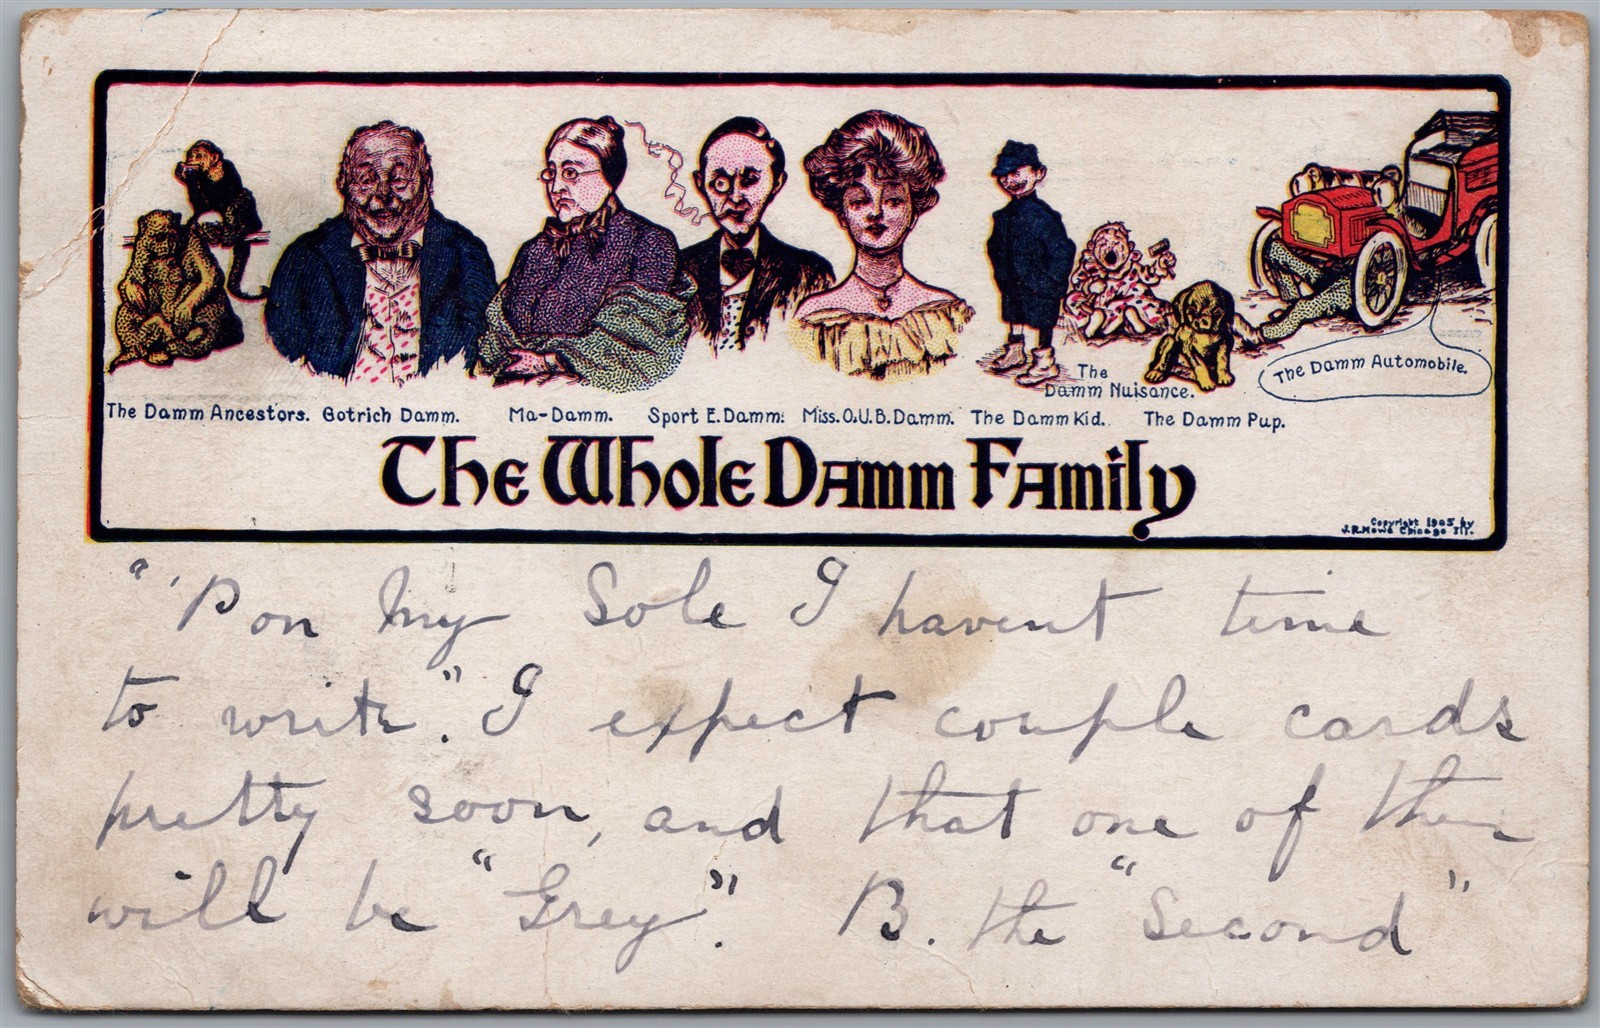 The Damm Ancestors. Gotrich Damm. Ma-Damm. Sport E. Damm. Miss. O.U.B. Damm. The Damm Kid. The Damm Nuisance. The Damm Pup. The Damm Automobile.
The Whole Damm Family
Copyright 1905 by
J.R.Howe Chicago Ill.
"'Pon My Sole I havent time
to write". I expect couple cards
pretty soon, and that one of them
will be "Grey". B. the "Second"